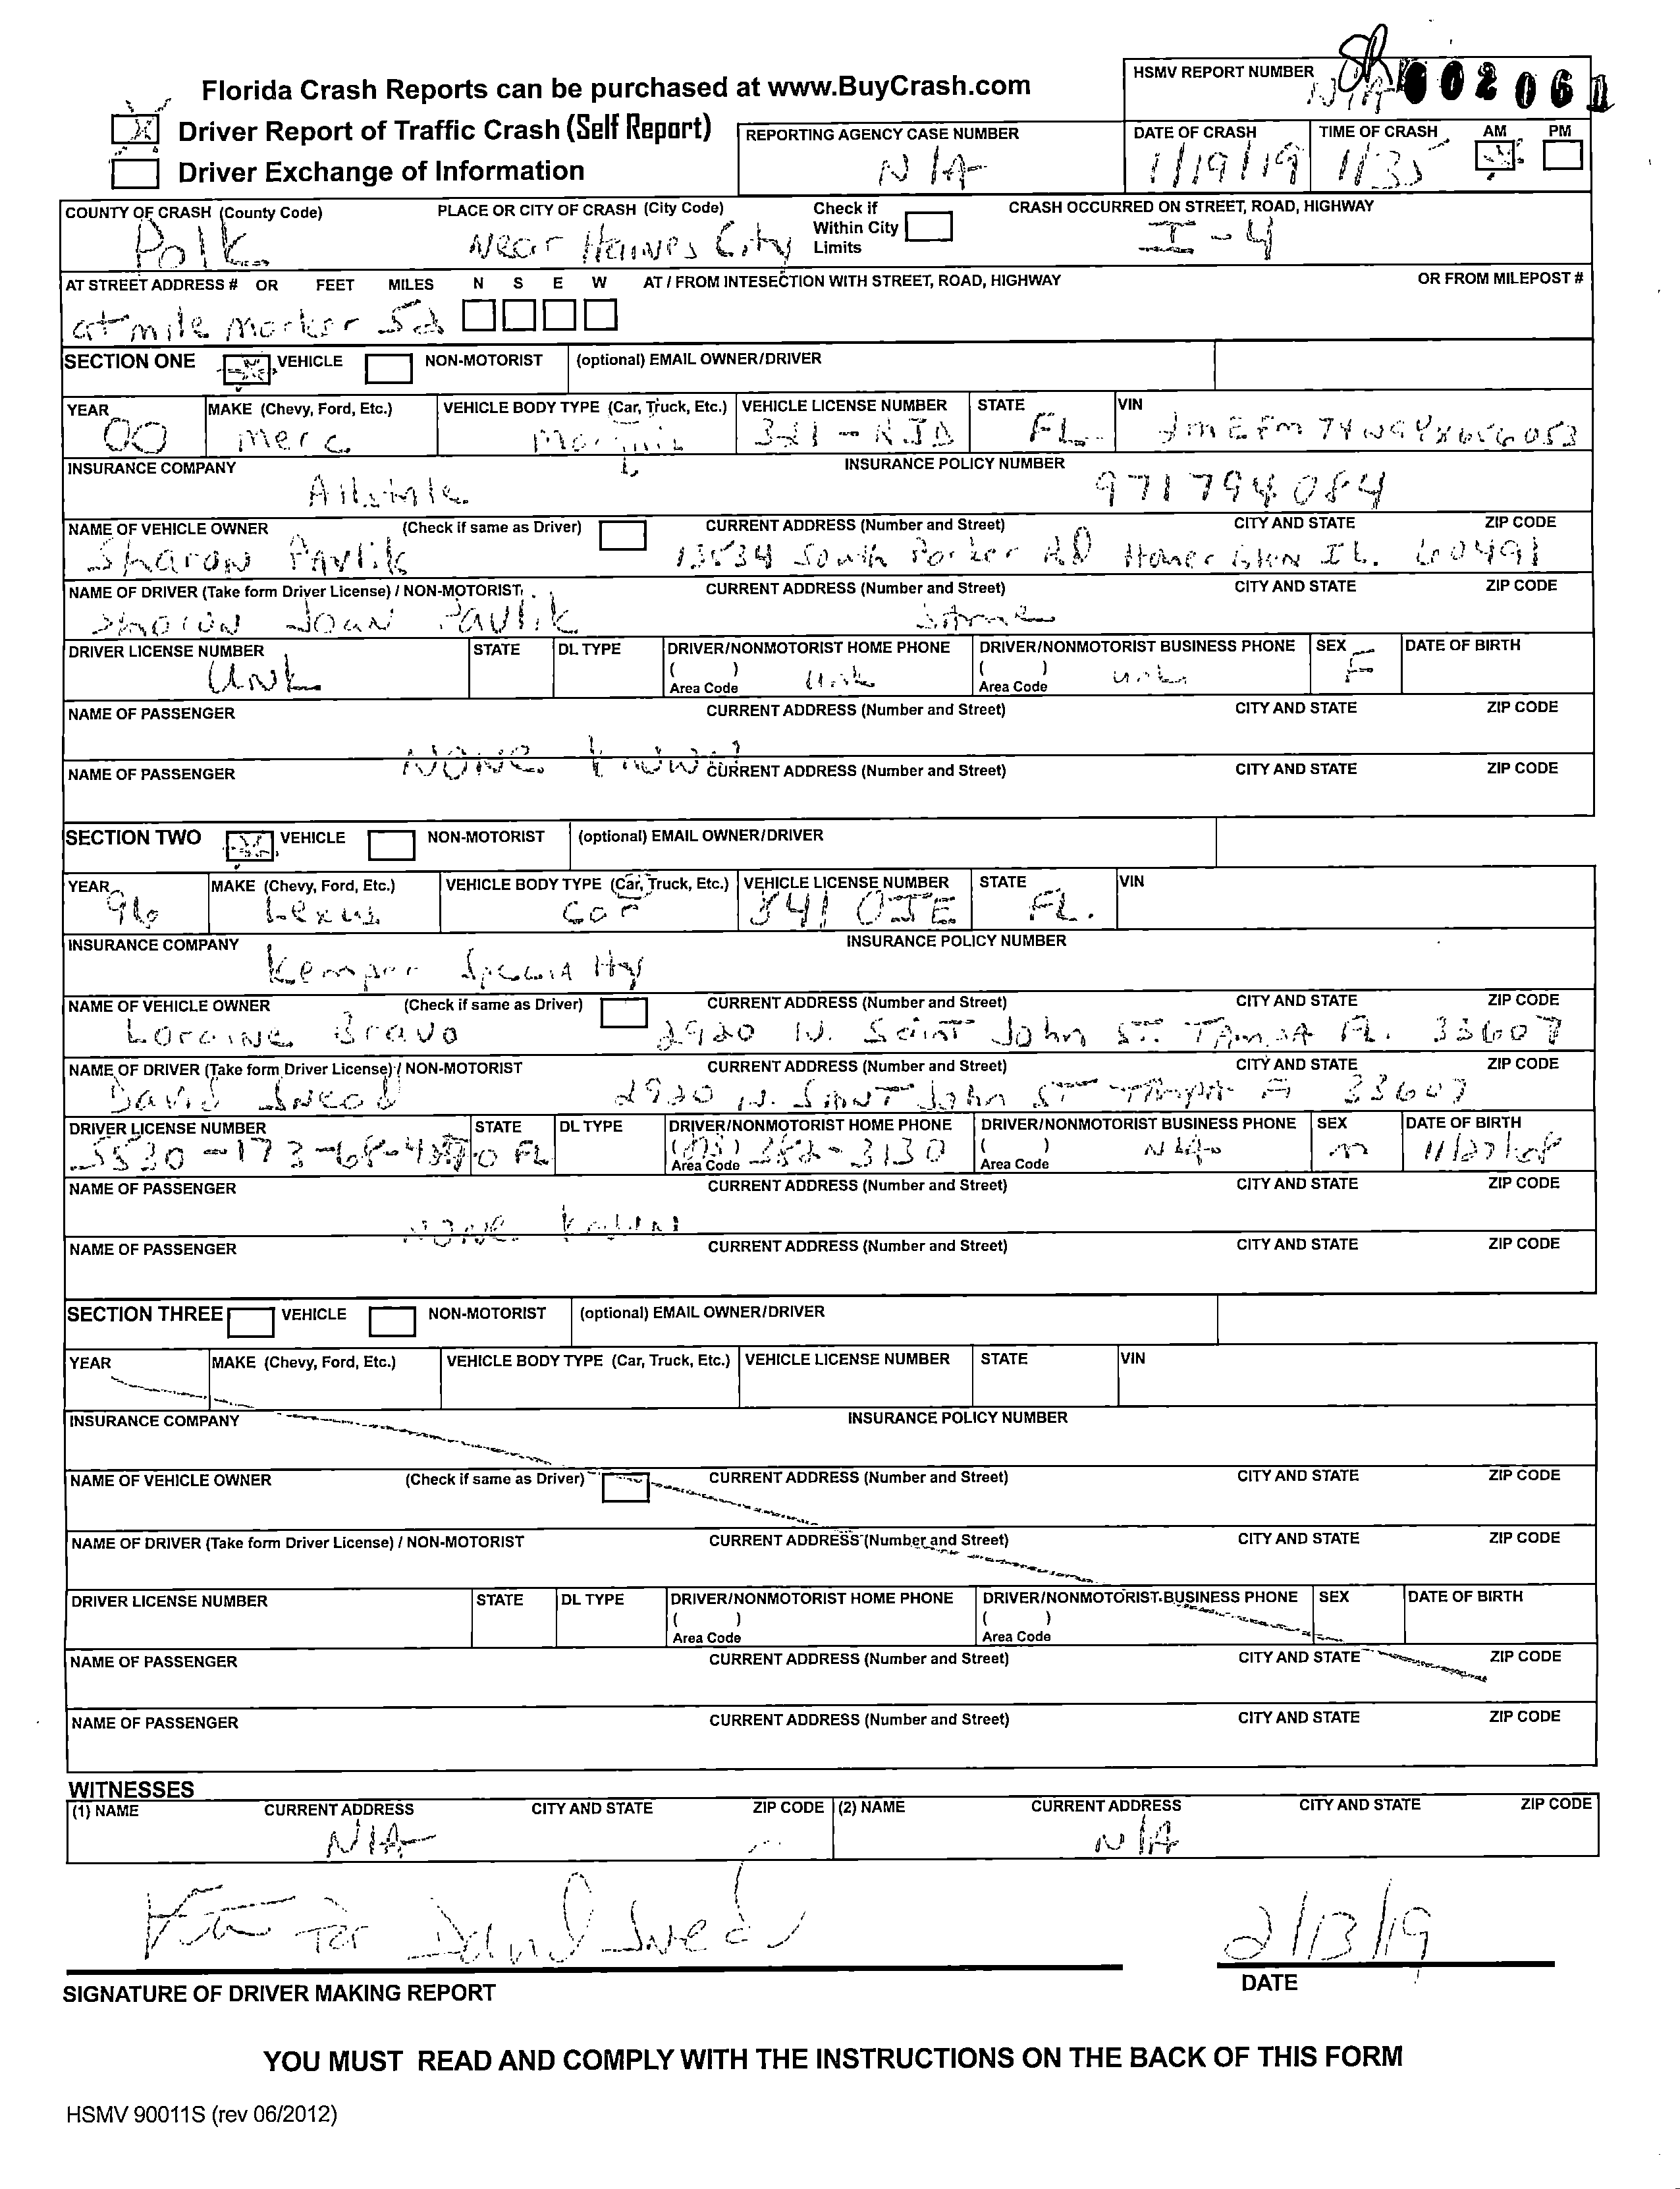 Florida Crash Reports can be purchased at www.BuyCrash.com
HSMV REPORT NUMBER
N/A
Driver Report of Traffic Crash (Self Report)
Driver Exchange of Information
REPORTING AGENCY CASE NUMBER
N/A
DATE OF CRASH
1/19/19
TIME OF CRASH AM PM
1135
COUNTY OF CRASH (County Code)
Polk
PLACE OR CITY OF CRASH (City Code)
Near Haines City
Check if
Within City
Limits
CRASH OCCURRED ON STREET, ROAD, HIGHWAY
I-4
AT STREET ADDRESS # OR FEET MILES N S E W AT / FROM INTESECTION WITH STREET, ROAD, HIGHWAY OR FROM MILEPOST #
at mile marker 52
SECTION ONE VEHICLE NON-MOTORIST (optional) EMAIL OWNER/DRIVER
YEAR MAKE (Chevy, Ford, Etc.) VEHICLE BODY TYPE (Car, Truck, Etc.) VEHICLE LICENSE NUMBER STATE VIN
00 Merc FL
INSURANCE COMPANY INSURANCE POLICY NUMBER
Allstate 971794084
NAME OF VEHICLE OWNER (Check if same as Driver) CURRENT ADDRESS (Number and Street) CITY AND STATE ZIP CODE
Sharon Pavlik 13534 South Parker RD Homer Glen IL. 60491
NAME OF DRIVER (Take form Driver License) / NON-MOTORIST CURRENT ADDRESS (Number and Street) CITY AND STATE ZIP CODE
Sharon Joan Pavlik Same
DRIVER LICENSE NUMBER STATE DL TYPE DRIVER/NONMOTORIST HOME PHONE DRIVER/NONMOTORIST BUSINESS PHONE SEX DATE OF BIRTH
( ) ( )
Area Code Area Code
Unk Unk Unk F
NAME OF PASSENGER CURRENT ADDRESS (Number and Street) CITY AND STATE ZIP CODE
None known
NAME OF PASSENGER CURRENT ADDRESS (Number and Street) CITY AND STATE ZIP CODE
SECTION TWO VEHICLE NON-MOTORIST (optional) EMAIL OWNER/DRIVER
YEAR MAKE (Chevy, Ford, Etc.) VEHICLE BODY TYPE (Car, Truck, Etc.) VEHICLE LICENSE NUMBER STATE VIN
96 Lexus Car FL.
INSURANCE COMPANY INSURANCE POLICY NUMBER
Kemper Specialty
NAME OF VEHICLE OWNER (Check if same as Driver) CURRENT ADDRESS (Number and Street) CITY AND STATE ZIP CODE
Loraine Bravo 2920 N. Saint John ST. TAMPA FL. 33607
NAME OF DRIVER (Take form Driver License) / NON-MOTORIST CURRENT ADDRESS (Number and Street) CITY AND STATE ZIP CODE
David Sneed 2920 N. Saint John ST Tampa Fl 33607
DRIVER LICENSE NUMBER STATE DL TYPE DRIVER/NONMOTORIST HOME PHONE DRIVER/NONMOTORIST BUSINESS PHONE SEX DATE OF BIRTH
FL 382-3130 N/A M 11/27/68
( ) ( )
Area Code Area Code
NAME OF PASSENGER CURRENT ADDRESS (Number and Street) CITY AND STATE ZIP CODE
None known
NAME OF PASSENGER CURRENT ADDRESS (Number and Street) CITY AND STATE ZIP CODE
SECTION THREE VEHICLE NON-MOTORIST (optional) EMAIL OWNER/DRIVER
YEAR MAKE (Chevy, Ford, Etc.) VEHICLE BODY TYPE (Car, Truck, Etc.) VEHICLE LICENSE NUMBER STATE VIN
INSURANCE COMPANY INSURANCE POLICY NUMBER
NAME OF VEHICLE OWNER (Check if same as Driver) CURRENT ADDRESS (Number and Street) CITY AND STATE ZIP CODE
NAME OF DRIVER (Take form Driver License) / NON-MOTORIST CURRENT ADDRESS (Number and Street) CITY AND STATE ZIP CODE
DRIVER LICENSE NUMBER STATE DL TYPE DRIVER/NONMOTORIST HOME PHONE DRIVER/NONMOTORIST BUSINESS PHONE SEX DATE OF BIRTH
( ) ( )
Area Code Area Code
NAME OF PASSENGER CURRENT ADDRESS (Number and Street) CITY AND STATE ZIP CODE
NAME OF PASSENGER CURRENT ADDRESS (Number and Street) CITY AND STATE ZIP CODE
WITNESSES
(1) NAME CURRENT ADDRESS CITY AND STATE ZIP CODE (2) NAME CURRENT ADDRESS CITY AND STATE ZIP CODE
N/A N/A
For David Sneed 2/13/19
SIGNATURE OF DRIVER MAKING REPORT DATE
YOU MUST READ AND COMPLY WITH THE INSTRUCTIONS ON THE BACK OF THIS FORM
HSMV 90011S (rev 06/2012)